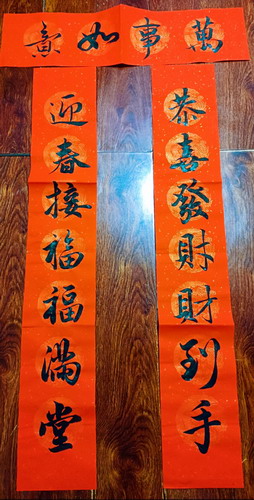 萬事如意
恭喜發財財到手
迎春接福福滿堂